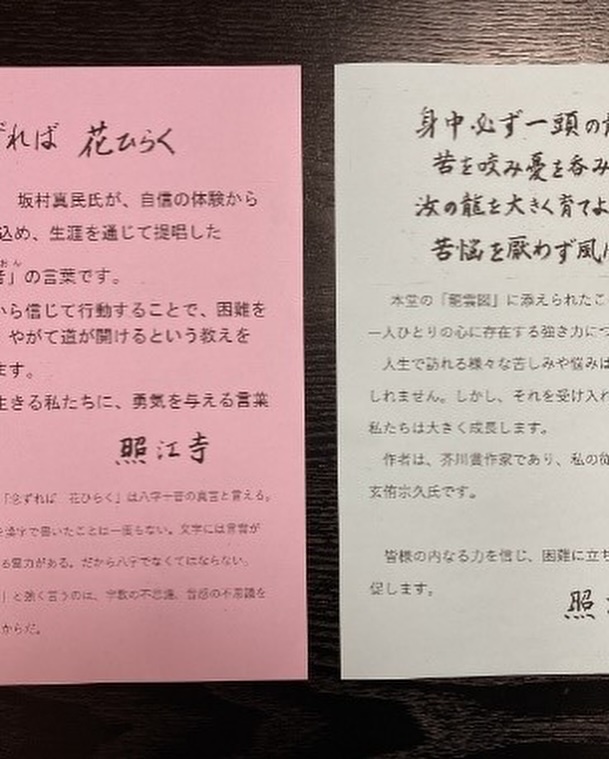 ずれば 花ひらく
坂村真民氏が、自信の体験から
込め、生涯を通じて提唱した
おん
音」の言葉です。
から信じて行動することで、困難を
、やがて道が開けるという教えを
ます。
生きる私たちに、勇気を与える言葉
照江寺
「念ずれば 花ひらく」は八字十音の真言と言える。
を漢字で書いたことは一度もない。文字には言霊が
る霊力がある。だから八字でなくてはならない。
」と強く言うのは、字数の不思議、音感の不思議を
からだ。
身中必ず一頭の
苦を咬み憂を呑み
汝の龍を大きく育てよ
苦悩を厭わず風
本堂の「龍雲図」に添えられたこ
一人ひとりの心に存在する強き力につ
人生で訪れる様々な苦しみや悩みは
しれません。しかし、それを受け入れ
私たちは大きく成長します。
作者は、芥川賞作家であり、私の従
玄侑宗久氏です。
皆様の内なる力を信じ、困難に立ち
促します。
照